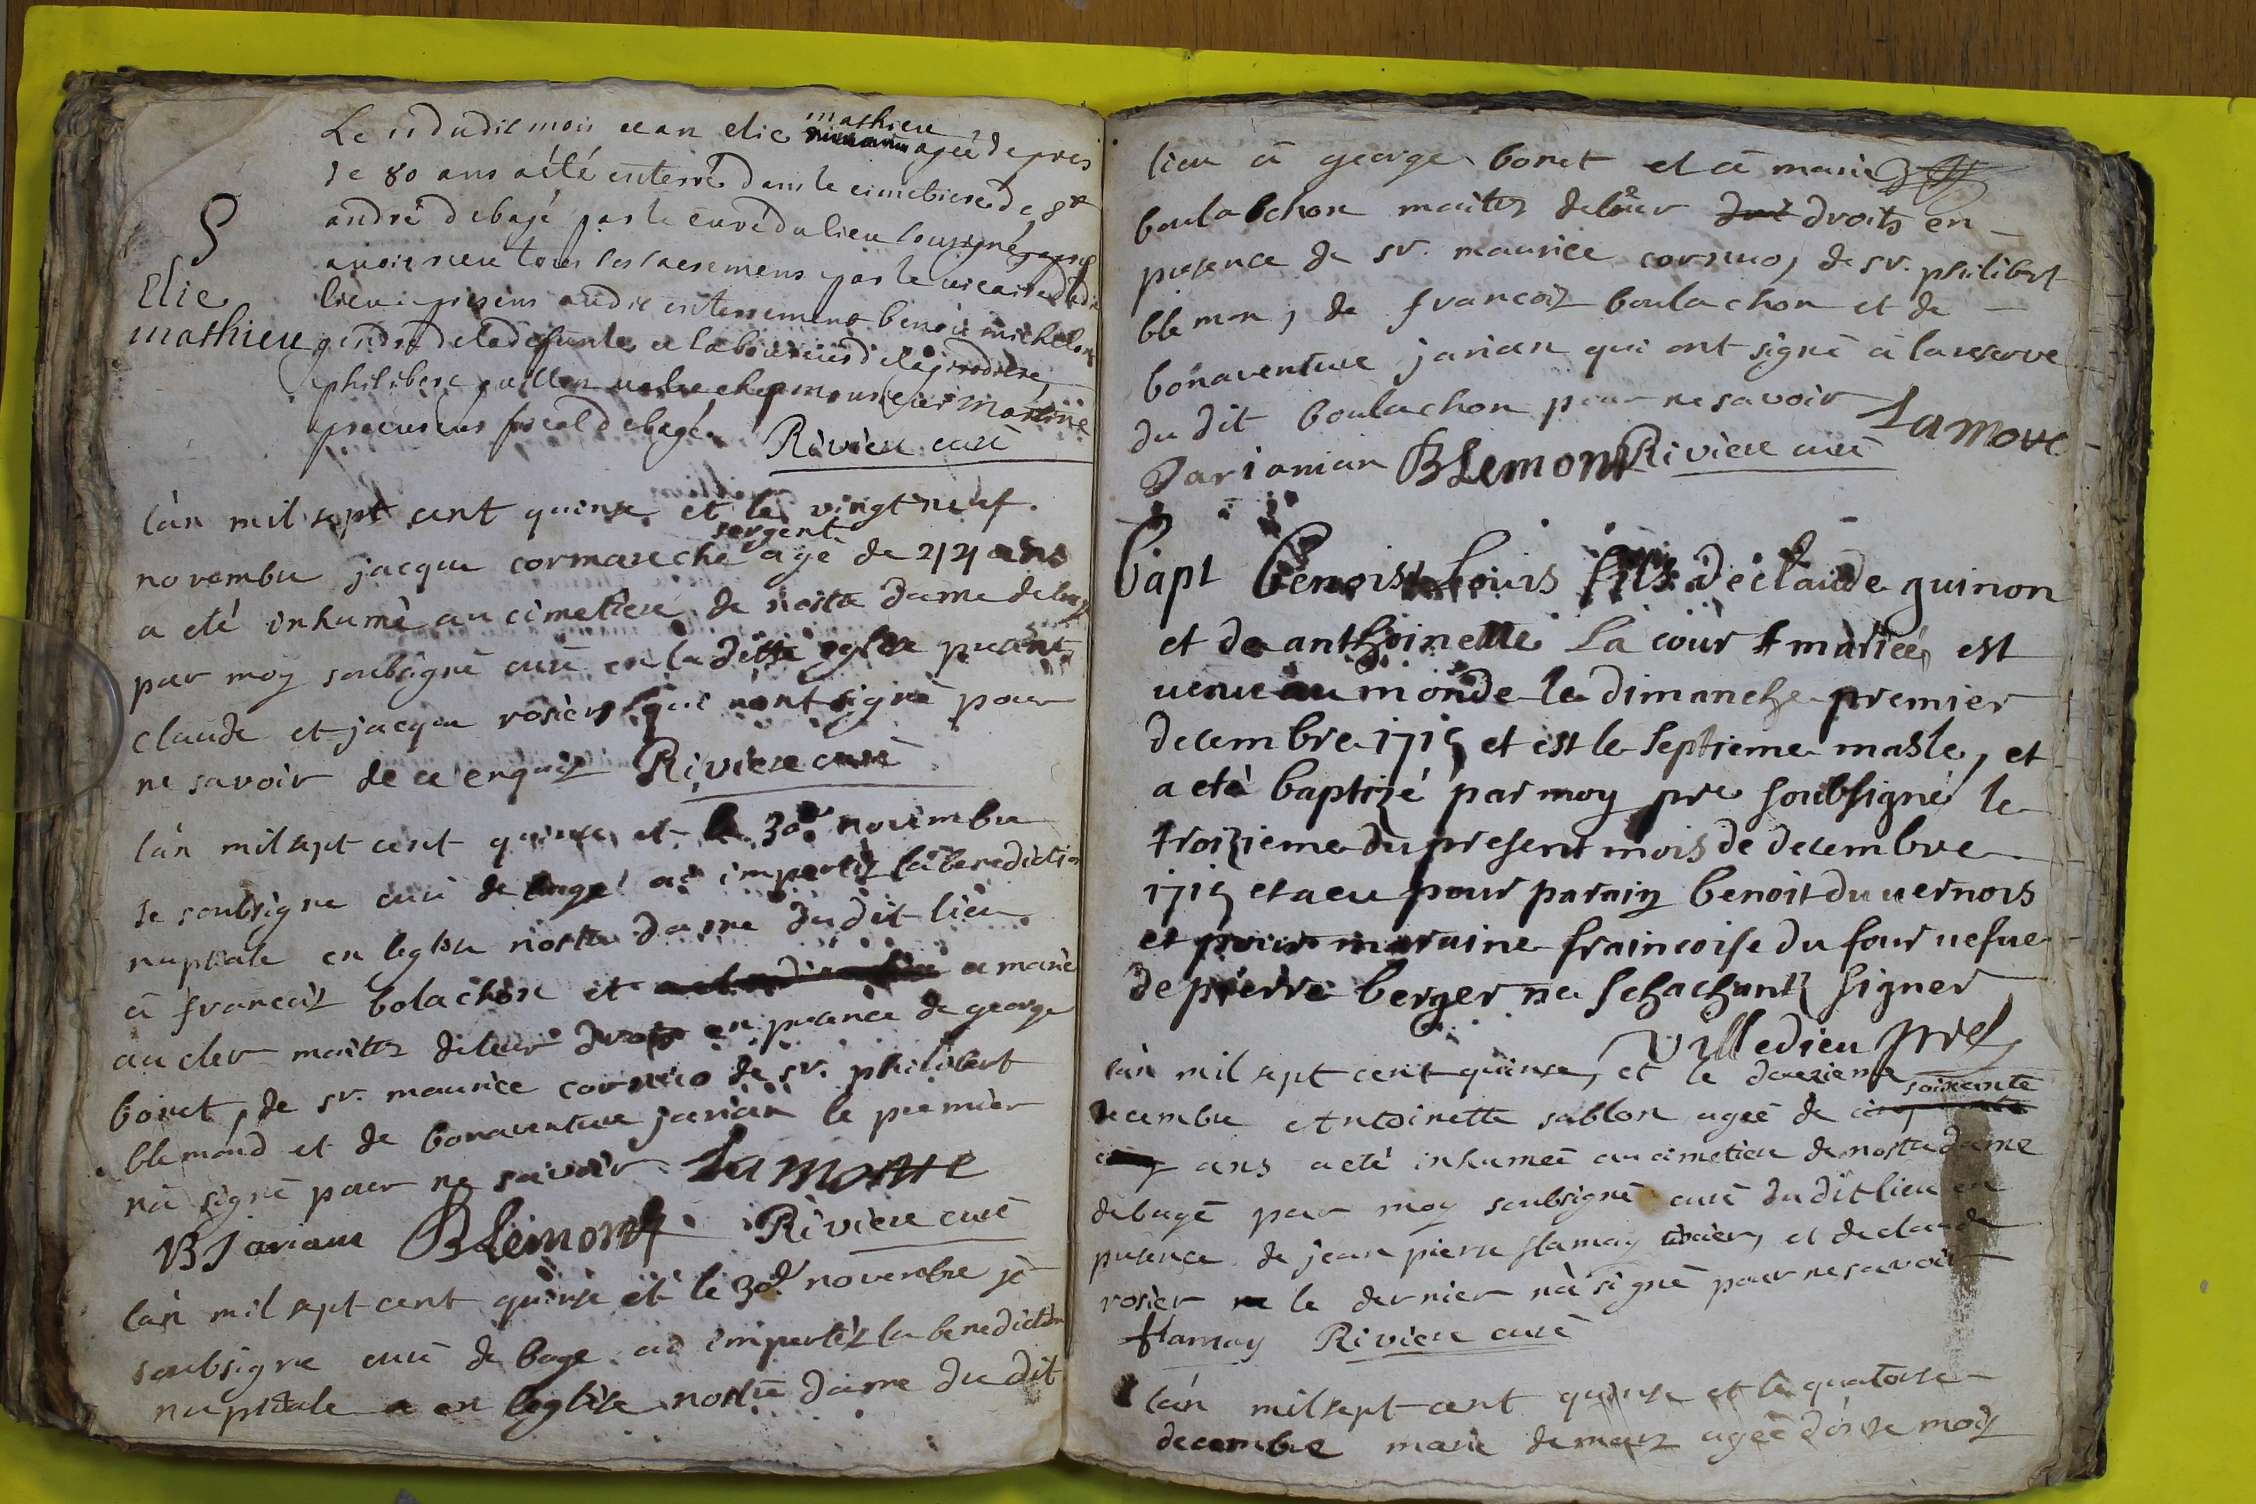 S
Elie
mathieu
Le 11 dudit mois et an elie mathieu agée de pres
de 80 ans a été enterré dans le cimetiere de St
andré de bagé par le curé du lieu soussigné apres
avoir receu tous ses sacremens par le vicaire dudit
lieu presens audit enterrement benoit michelon
gendre de la defunte et laboureur
philibert monsieur martine
procureur fiscal de bagé Riviere curé
lan mil sept cent quinse et le vingt neuf
novembre jacque cormareche sergent agé de 44 ans
a eté inhumé au cimetiere de nostre dame de bagé
par moy soubsigné curé en la ditte eglise presents
claude et jacque rosier qui nont signé pour
ne savoir de ce enquis Riviere curé
lan mil sept cent quinse et le 30e novembre
je soubsigne curé de bagé ai imparti la benediction
nuptiale en leglise nostre dame du dit lieu
a francois bolachon et a marie
au cler maitres de leur droits en presence de george
bonet, de sr. maurice cornuo de sr. philibert
blemond et de bonaventure jarian le premier
na signé pour ne savoir. Lamotte
B Jarian BLemont Riviere curé
lan mil sept cent quinse et le 30e novembre je
soubsigne curé de bage ai imparti la benediction
nuptiale a en leglise nostre dame du dit
lieu a george bonet et a marie
boulachon maitres de leur droits en
presence de sr. maurice cornuo, de sr. philibert
blemon, de francois boulachon et de
bonaventure jarian qui ont signé a la reserve
du dit boulachon pour ne savoir Lamotte
Jarian BLemont Riviere curé
bapt benoist Louis fils de claude guinon
et de anthoinette La cour mariée est
venu au monde le dimanche premier
decembre 1715 et est le septieme masle, et
a eté baptizé par moy pre soubsigné le
troizieme du present mois de decembre
1715 et a eu pour parain benoit du vernois
et pour maraine francoise du four vefve
de pierre berger ne schachantz signer
Villedieu pre
lan mil sept cent quinse, et le deuzieme
decembre Antoinette sablon agée de soixante
ans a eté inhumée au cimetiere de nostre dame
de bagé par moy soubsigné curé du dit lieu en
presence de jean pierre flamay, et de claude
rosier le dernier na signé pour ne savoir
flamay Riviere curé
lan mil sept cent quinse et le quatorse
decembre marie agée d'onse mois